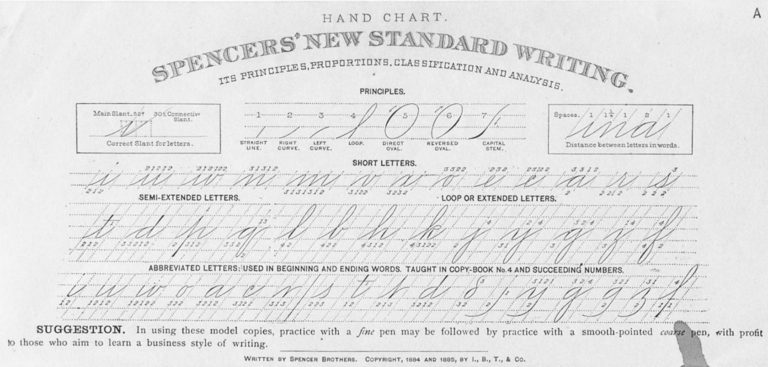 A
HAND CHART.
SPENCERS' NEW STANDARD WRITING.
ITS PRINCIPLES, PROPORTIONS, CLASSIFICATION AND ANALYSIS.
PRINCIPLES.
Main Slant. 52° 30° Connective Slant.
Correct Slant for letters.
1 2 3 4 5 6 7
STRAIGHT LINE. RIGHT CURVE. LEFT CURVE. LOOP. DIRECT OVAL. REVERSED OVAL. CAPITAL STEM.
Spaces.
and
Distance between letters in words.
SHORT LETTERS.
i u w n m v x o c e a r s
SEMI-EXTENDED LETTERS. LOOP OR EXTENDED LETTERS.
t d p q l b h k j y g z f
ABBREVIATED LETTERS: USED IN BEGINNING AND ENDING WORDS. TAUGHT IN COPY-BOOK No. 4 AND SUCCEEDING NUMBERS.
SUGGESTION. In using these model copies, practice with a fine pen may be followed by practice with a smooth-pointed coarse pen, with profit
to those who aim to learn a business style of writing.
WRITTEN BY SPENCER BROTHERS. COPYRIGHT, 1884 AND 1885, BY I., B., T., & CO.